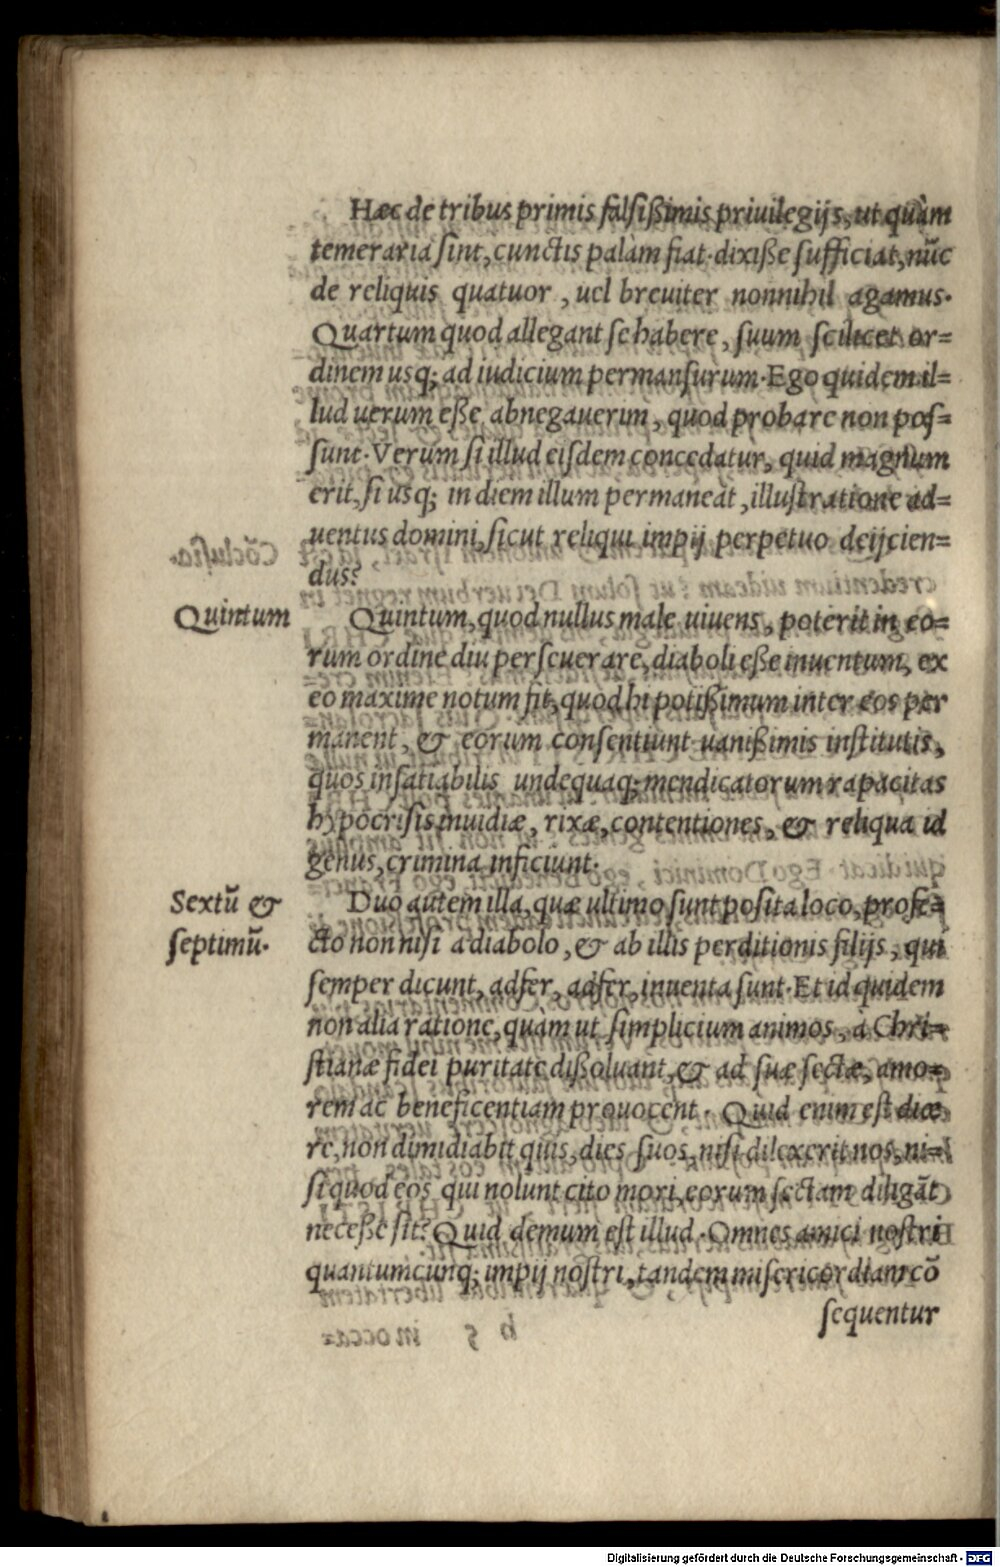 Hæc de tribus primis falſißimis priuilegijs, ut quàm
temeraria ſint, cunctis palàm fiat. dixiße ſufficiat, nūc
de reliquis quatuor, uel breuiter nonnihil agamus.
Quartum quod allegant ſe habere, ſuum ſcilicet or=
dinem usq; ad iudicium permanſurum. Ego quidem il=
lud uerum eße abnegauerim, quod probare non poſ=
ſunt. Verùm ſi illud eiſdem concedatur, quid magnum
erit, ſi usq; in diem illum permaneat, illuſtratione ad=
uentus domini, ſicut reliqui impij perpetuo deijcien=
dus?
Quintum
Quintum, quod nullus male uiuens, poterit in eo=
rum ordine diu perſeuerare, diaboli eße inuentum, ex
eo maxime notum fit, quod hi potißimum inter eos per
manent, & eorum conſentiunt uanißimis inſtitutis,
quos inſatiabilis undequaq; mendicatorum rapacitas
hypocriſis inuidiæ, rixæ, contentiones, & reliqua id
genus, crimina inficiunt.
Sextū &
ſeptimū.
Duo autem illa, quæ ultimo ſunt poſita loco, profe=
cto non niſi a diabolo, & ab illis perditionis filijs, qui
ſemper dicunt, adfer, adfer, inuenta ſunt. Et id quidem
non alia ratione, quàm ut ſimplicium animos, à Chri=
ſtianæ fidei puritate dißoluant, & ad ſuæ ſectæ, amo=
rem ac beneficentiam prouocent. Quid enim eſt dice
re, non dimidiabit quis, dies ſuos, niſi dilexerit nos, ni=
ſi quod eos qui nolunt cito mori, eorum ſectam diligāt
neceße ſit? Quid demum eſt illud. Omnes amici noſtri
quantumcunq; impij noſtri, tandem miſericordiam cō
ſequentur
Digitalisierung gefördert durch die Deutsche Forschungsgemeinschaft - DFG